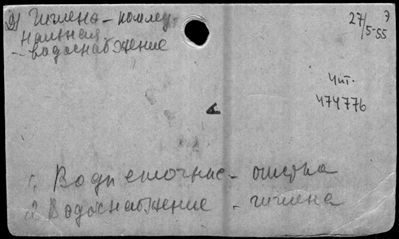 2) Гигиена - коммунальная
- водоснабжение
27/5-55 э
Чит.
474776
1. Воды сточные - очистка
2. Водоснабжение - гигиена